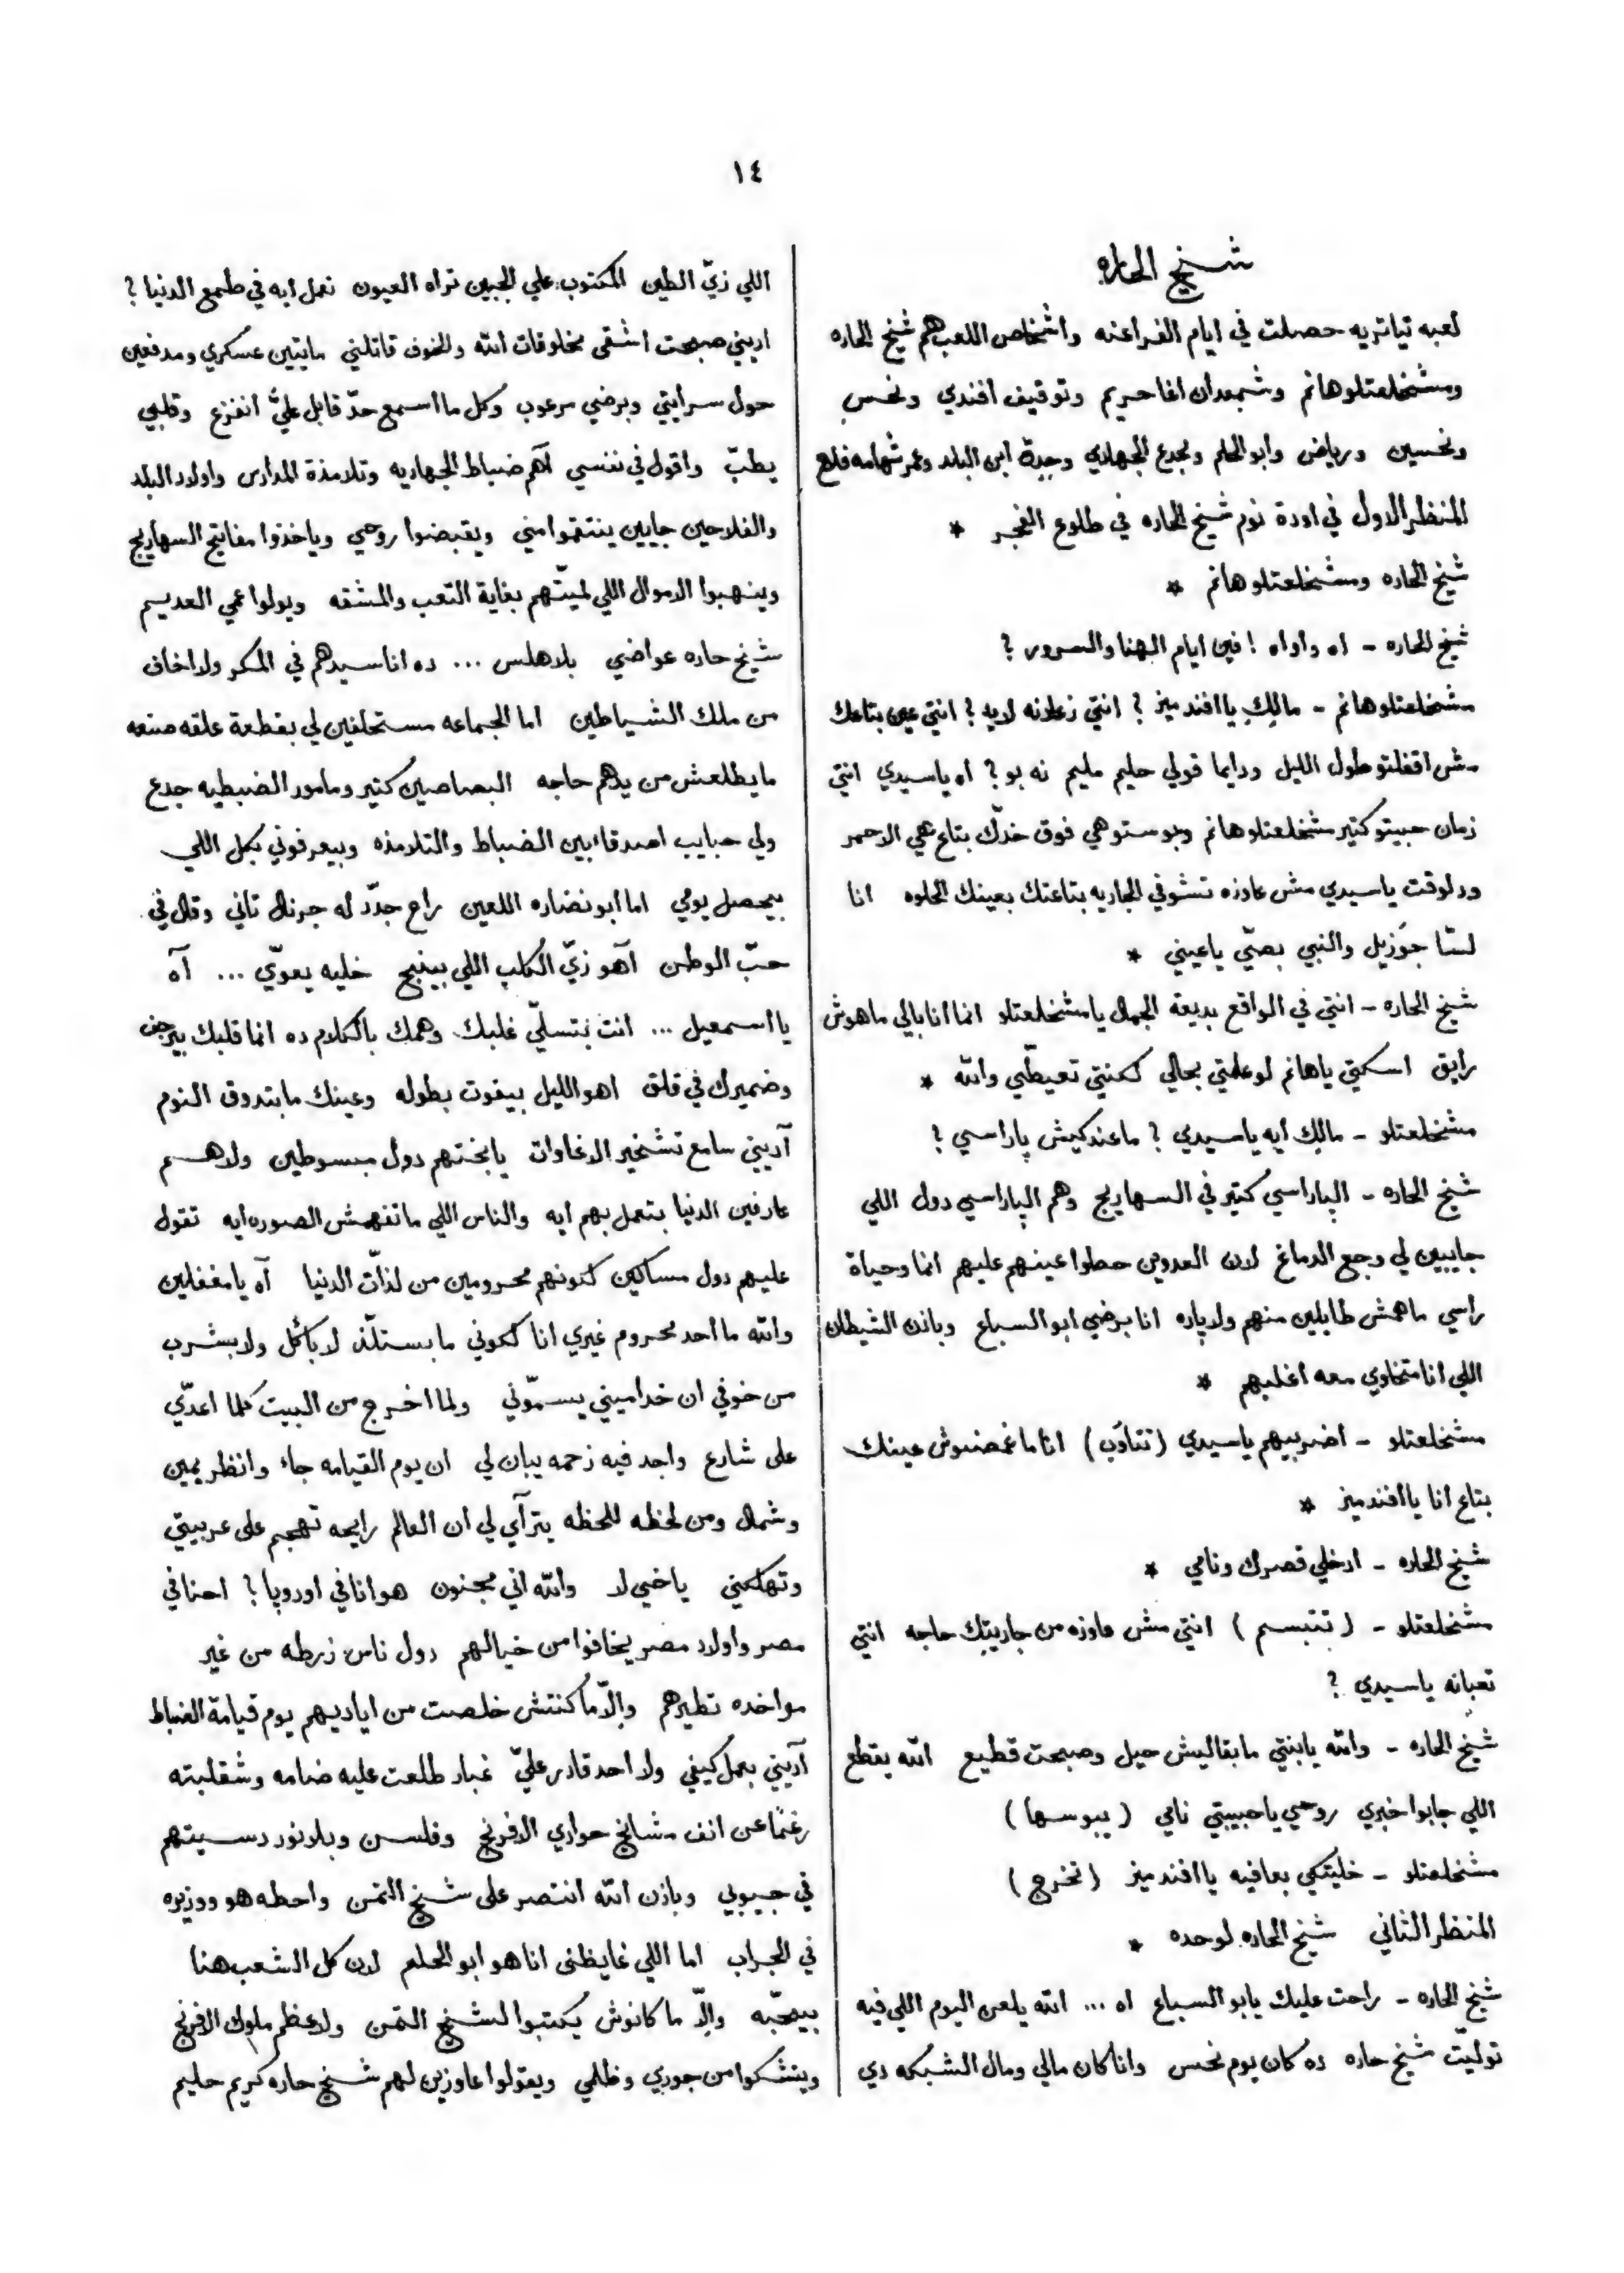 ١٤
شيخ الحاره
لعبه تياتريه حصلت في ايام الفراعنه واشخاص اللعب هم شيخ الحاره
ومشخلعتلو هانم وشمعدان اغا حريم وتوقيف افندي ونحس
ونحسين ورياض وابو الحلم ولجدع الجهادي وجدة ابن البلد وعمر شهامه فلاح
المنظر الاول في اودة نوم شيخ الحاره في طلوع الفجر *
شيخ الحاره ومشخلعتلو هانم *
شيخ الحاره - اه واواه ! فين ايام الهنا والسرور ؟
مشخلعتلو هانم - مالك يا افندميز ؟ انتي زعلانه لايه ؟ انتي عين بتاعك
مش اقفلتو طول الليل ودايما قولي حليم مليم نه بو ؟ اه ياسيدي انتي
زمان حبيتو كتير مشخلعتلو هانم وبوستو هي فوق خدّك بتاع هي الاحمر
ودلوقت ياسيدي مش عاوزه تشوفي الجاريه بتاعتك بعينك الحلوه انا
لسّا جوزيل والنبي بصّي ياعيني *
شيخ الحاره - انتي في الواقع بديعة الجمال يا مشخلعتلو انما انا بالي ماهوش
رايق اسكتي ياهانم لو علمتي بحالي لكنتي تعيطي والله *
مشخلعتلو - مالك ايه ياسيدي ؟ ماعندكيش پاراسي ؟
شيخ الحاره - الپاراسي كتير في السهاريج وهم الپاراسي دول اللي
جايبين لي وجع الدماغ لان العدوين حطوا عينهم عليهم انما وحياة
راسي ماهمش طايلين منهم ولا پاره انا برضي ابو السباع وباذن الشيطان
اللي انا متخاوي معه اغلبهم *
مشخلعتلو - اضربيهم ياسيدي (تتاوب) انا ما غمضتوش عينك
بتاع انا يا افندميز *
شيخ الحاره - ادخلي قصرك ونامي *
مشخلعتلو - (تتبسم) انتي مش عاوزه من جاريتك حاجه انتي
تعبانه ياسيدي ؟
شيخ الحاره - والله يابنتي مابقاليش حيل وصبحت قطيع الله يقطع
اللي جابوا خبري روحي ياحبيبتي نامي (يبوسها)
مشخلعتلو - خليتكي بعافيه يا افندميز (تخرج)
المنظر الثاني شيخ الحاره لوحده *
شيخ الحاره - راحت عليك يابو السباع اه ... الله يلعن اليوم اللي فيه
تولّيت شيخ حاره ده كان يوم نحس وانا كان مالي ومال الشبكه دي
اللي زيّ الطين المكتوب علي الجبين تراه العيون نعمل ايه في طمع الدنيا ؟
اديني صبحت اشقى مخلوقات الله والخوف قاتلني مايتين عسكري ومدفعين
حول سرايتي وبرضي مرعوب وكل ما اسمع حدّ قابل عليّ انفزع وقلبي
يطبّ واقول في نفسي آهم ضباط الجهاديه وتلامذة المدارس واولاد البلد
والفلاحين جايين ينتقموا مني ويقبضوا روحي وياخذوا مفاتيح السهاريج
وينهبوا الاموال اللي لميتهم بغاية التعب والمشقه ويولوا عمي العديم
شيخ حاره عواضي بلاهلس ... ده انا سيدهم في المكر ولا اخاف
من ملك الشياطين اما الجماعه مستحلفين لي بقطعة علقه صنعه
مايطلعش من يدهم حاجه البصاصين كتير ومامور الضبطيه جدع
ولي حبايب اصدقاء بين الضباط والتلامذه وبيعرفوني بكل اللي
بيحصل يومي اما ابو نضاره اللعين راح جدّد له جرنال تاني وقال في
حبّ الوطن آهو زيّ الكلب اللي بينبح خليه يعوّي ... آه
يا اسمعيل ... انت بتسلّي غلبك وهمك بالكلام ده انما قلبك بيرجف
وضميرك في قلق اهو الليل بيفوت بطوله وعينك مابتدوق النوم
آديني سامع تشخير الاغاوات يابختهم دول مبسوطين ولاهم
عارفين الدنيا بتعمل بهم ايه والناس اللي ماتفهمش الصوره ايه تقول
عليهم دول مساكين لكونهم محرومين من لذات الدنيا آه يامغفلين
والله ما احد محروم غيري انا لكوني ما بستلذ لا باكل ولا بشرب
من خوفي ان خدامينيي يسمّوني ولما اخرج من البيت كلما اعدّي
على شارع واجد فيه زحمه يبان لي ان يوم القيامه جاء وانظر يمين
وشمال ومن لحظه للحظه يترآى لي ان العالم رايحه تهجم على عربيتي
وتهلكني ياخي لا والله اني مجنون هو انا في اوروپا ؟ احنا في
مصر واولاد مصر يخافوا من خيالهم دول ناس زرطه من غير
مواخده تطيرهم والّا ماكنتش خلصت من اياديهم يوم قيامة الضباط
آديني بعمل كيفي ولا احد قادر عليّ غبار طلعت عليه ضامه وشقلبته
رغمًا عن انف مشايخ حواري الافرنج وفلسن وبلونور دسيتهم
في جيوبي وباذن الله انتصر على شيخ التمن واحطه هو ووزيره
في الجراب اما اللي غايظني انا هو ابو الحلم لان كل الشعب هنا
بيحبّه والّا ما كانوش يكتبوا لشيخ التمن ولاعظم ملوك الافرنج
ويتشكوا من جوري وظلمي ويقولوا عاوزين لهم شيخ حاره كريم حليم